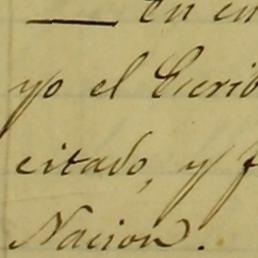 En
yo el Escrib
citado, y f
Nacion.